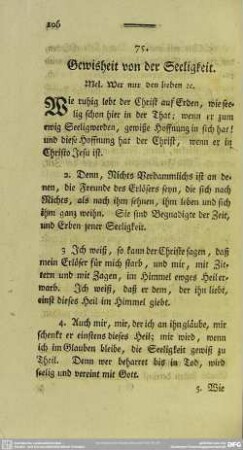 106
75.
Gewisheit von der Seeligkeit.
Mel. Wer nur den lieben ꝛc.
Wie ruhig lebt der Christ auf Erden, wie see-
lig schon hier in der That; wenn er zum
ewig Seeligwerden, gewiße Hoffnung in sich hat!
und diese Hoffnung hat der Christ, wenn er in
Christo Jesu ist.
2. Denn, Nichts Verdammlichs ist an de-
nen, die Freunde des Erlösers seyn, die sich nach
Nichts, als nach ihm sehnen, ihm leben und sich
ihm ganz weihn. Sie sind Begnadigte der Zeit,
und Erben jener Seeligkeit.
3 Ich weiß, so kann der Christe sagen, daß
mein Erlöser für mich starb, und mir, mit Zit-
tern und mit Zagen, im Himmel ewges Heil er-
warb. Ich weiß, daß er dem, der ihn liebt,
einst dieses Heil im Himmel giebt.
4. Auch mir, mir, der ich an ihn gläube, mir
schenkt er einstens dieses Heil; mir wird, wenn
ich im Glauben bleibe, die Seeligkeit gewiß zu
Theil. Denn wer beharret bis in Tod, wird
seelig und vereint mit Gott.
5. Wie